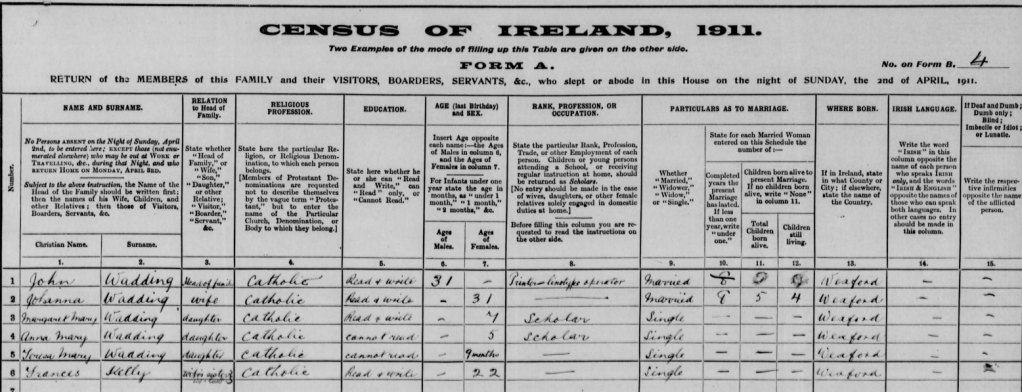 CENSUS OF IRELAND, 1911.
Two Examples of the mode of filling up this Table are given on the other side.
FORM A.
No. on Form B. 4
RETURN of the MEMBERS of this FAMILY and their VISITORS, BOARDERS, SERVANTS, &c., who slept or abode in this House on the night of SUNDAY, the 2nd of APRIL, 1911.
Number.
NAME AND SURNAME.
No Persons ABSENT on the Night of Sunday, April
2nd, to be entered here; EXCEPT those (not enu-
merated elsewhere) who may be out at WORK or
TRAVELLING, &c., during that Night, and who
RETURN HOME ON MONDAY, APRIL 3RD.
Subject to the above instruction, the Name of the
Head of the Family should be written first;
then the names of his Wife, Children, and
other Relatives; then those of Visitors,
Boarders, Servants, &c.
Christian Name.
Surname.
RELATION
to Head of
Family.
State whether
"Head of
Family," or
"Wife,"
"Son,"
"Daughter,"
or other
Relative;
"Visitor,"
"Boarder,"
"Servant,"
&c.
RELIGIOUS
PROFESSION.
State here the particular Re-
ligion, or Religious Denom-
ination, to which each person
belongs.
[Members of Protestant De-
nominations are requested
not to describe themselves
by the vague term "Protes-
tant," but to enter the
name of the Particular
Church, Denomination, or
Body to which they belong.]
EDUCATION.
State here whether he
or she can "Read
and Write," can
"Read" only, or
"Cannot Read."
AGE (last Birthday)
and SEX.
Insert Age opposite
each name:—the Ages
of Males in column 6,
and the Ages of
Females in column 7.
For Infants under one
year state the age in
months, as "under 1
month," "1 month,"
"2 months," &c.
Ages
of
Males.
Ages
of
Females.
RANK, PROFESSION, OR
OCCUPATION.
State the particular Rank, Profession,
Trade, or other Employment of each
person. Children or young persons
attending a School, or receiving
regular instruction at home, should
be returned as Scholars.
[No entry should be made in the case
of wives, daughters, or other female
relatives solely engaged in domestic
duties at home.]
Before filling this column you are re-
quested to read the instructions on
the other side.
PARTICULARS AS TO MARRIAGE.
Whether
"Married,"
"Widower,"
"Widow,"
or "Single."
State for each Married Woman
entered on this Schedule the
number of:—
Completed
years the
present
Marriage
has lasted.
If less
than one
year, write
"under
one."
Children born alive to
present Marriage. If
no children born
alive, write "None"
in column 11.
Total
Children
born
alive.
Children
still
living.
WHERE BORN.
If in Ireland, state
in what County or
City; if elsewhere,
state the name of
the Country.
IRISH LANGUAGE.
Write the word
"IRISH" in this
column opposite the
name of each person
who speaks IRISH
only, and the words
"IRISH & ENGLISH"
opposite the names of
those who can speak
both languages. In
other cases no entry
should be made in
this column.
If Deaf and Dumb;
Dumb only;
Blind;
Imbecile or Idiot;
or Lunatic.
Write the respec-
tive infirmities
opposite the name
of the afflicted
person.
1. 2. 3. 4. 5. 6. 7. 8. 9. 10. 11. 12. 13. 14. 15.
1 John Wadding Head of Catholic Read & write 31 – Printer - linotype operator Married Wexford – –
2 Johanna Wadding wife Catholic Read & write – 31 – Married 8 5 4 Wexford – –
3 Margaret Mary Wadding daughter Catholic Read & write – 7 Scholar Single – – – Wexford – –
4 Anna Mary Wadding daughter Catholic cannot read – 5 Scholar Single – – – Wexford – –
5 Teresa Mary Wadding daughter Catholic cannot read – 9 months – Single – – – Wexford – –
6 Frances Kelly Catholic Read & write – 22 – Single – – – Wexford –